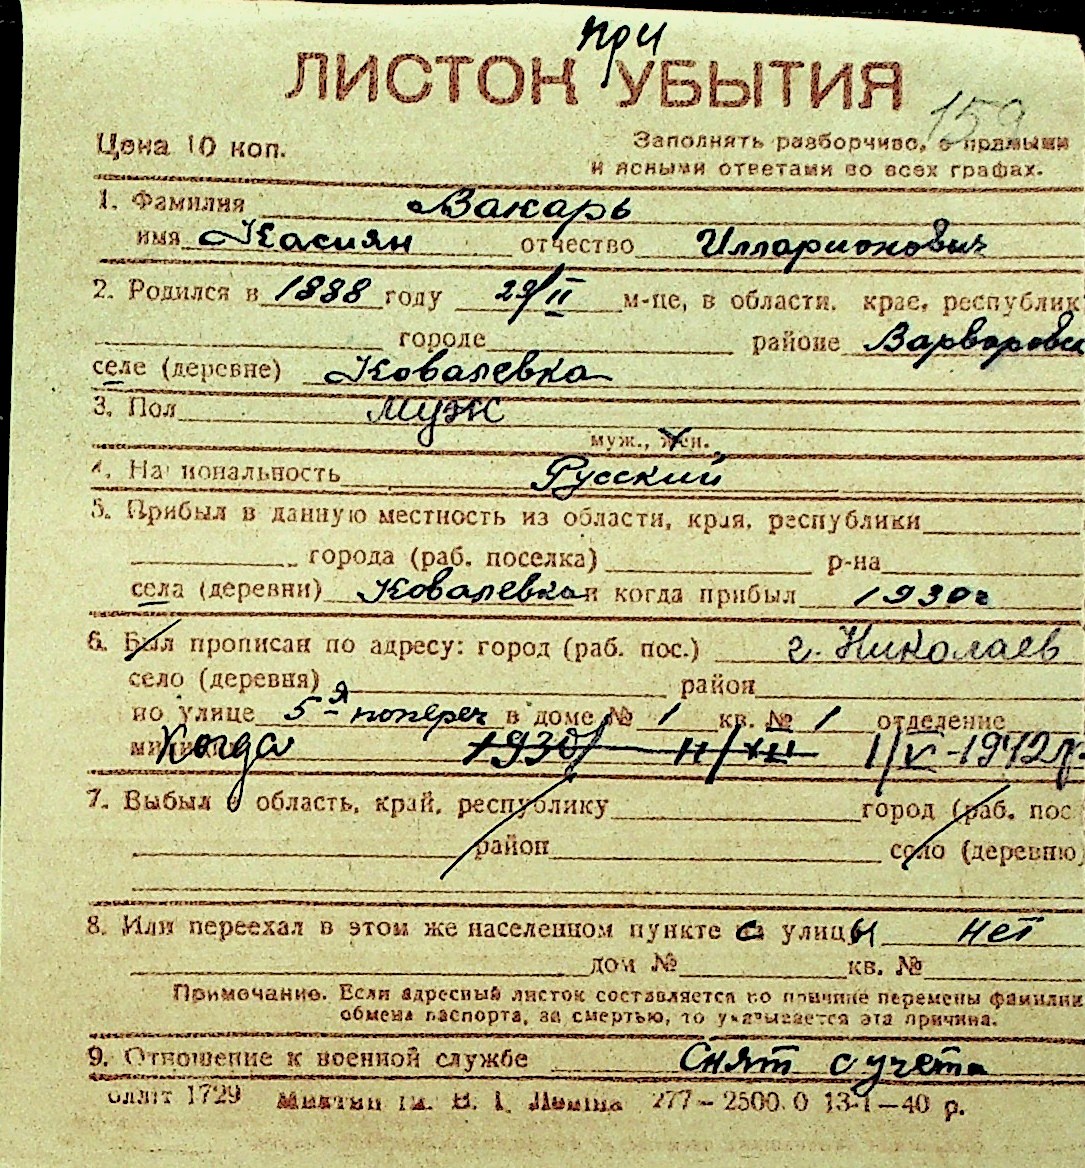 при
ЛИСТОК УБЫТИЯ
159
Цена 10 коп.
Заполнять разборчиво, с прямыми
и ясными ответами во всех графах.
1. Фамилия Вакарь
имя Касиян отчество Илларионович
2. Родился в 1888 году 29/II м-це, в области, крае, республик
городе районе Варваровск
селе (деревне) Ковалевка
3. Пол муж
муж., жен.
4. Национальность Русский
5. Прибыл в данную местность из области, края, республики
города (раб. поселка) р-на
села (деревни) Ковалевка и когда прибыл 1930г
6. Был прописан по адресу: город (раб. пос.) г. Николаев
село (деревня) район
по улице 5-я попереч в доме № 1 кв. № 1 отделение
Когда 1930 II/XII 1/V-1942г.
7. Выбыл в область, край, республику город (раб. пос
район село (деревню)
8. Или переехал в этом же населенном пункте с улицы нет
дом № кв. №
Примечание. Если адресный листок составляется по причине перемены фамилии
обмена паспорта, за смертью, то указывается эта причина.
9. Отношение к военной службе Снят с учета
1729 277-2500.0 13-1-40 р.